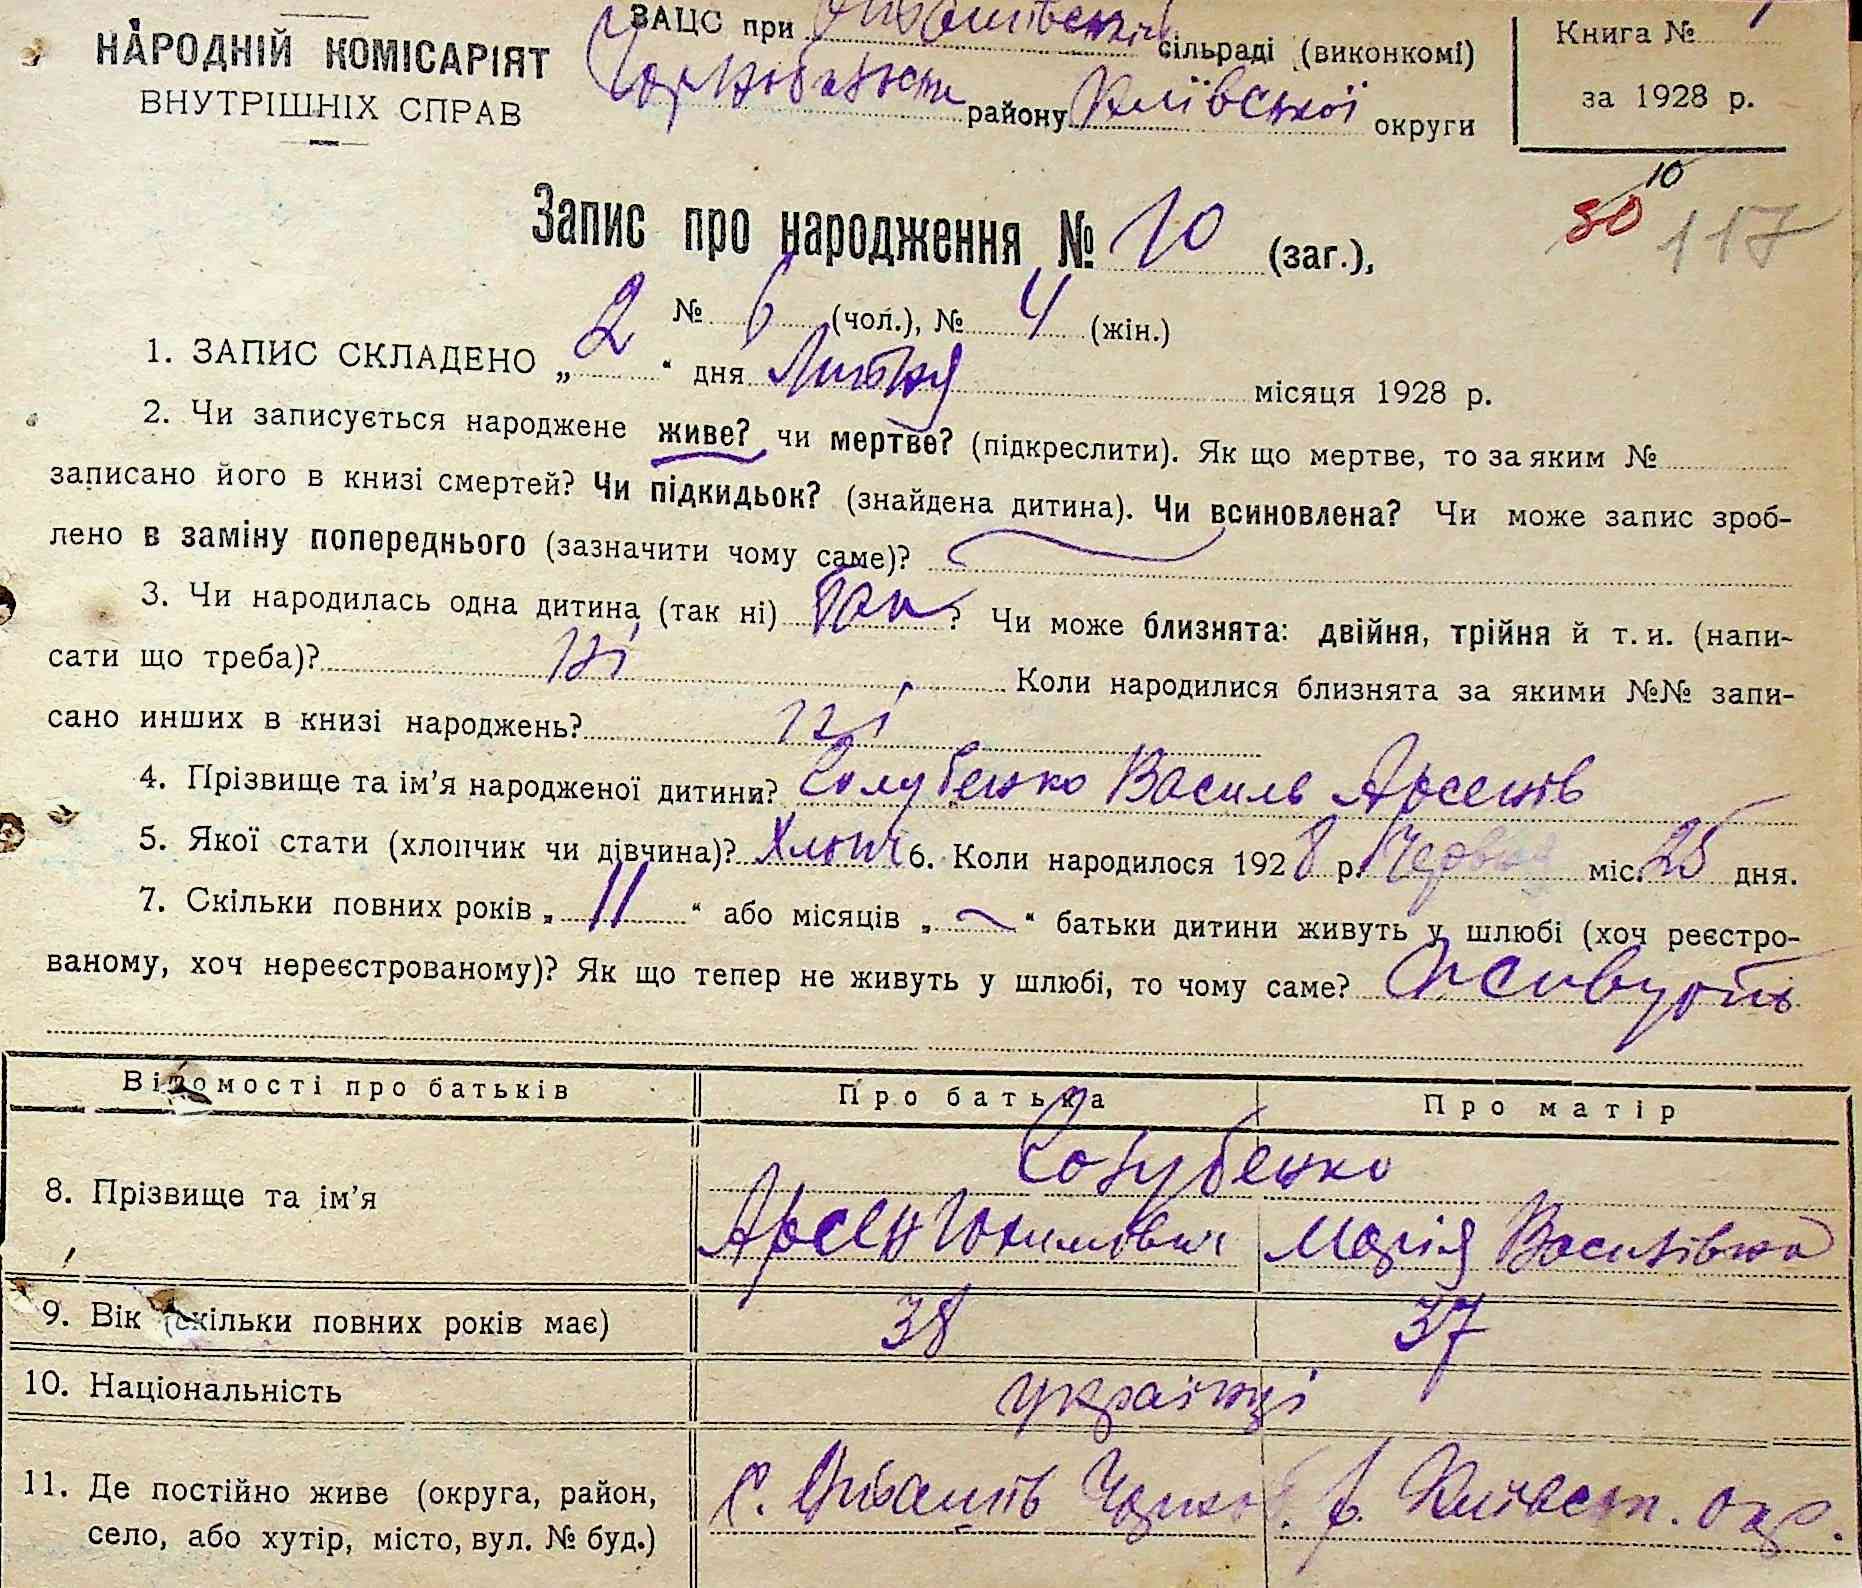 НАРОДНІЙ КОМІСАРІЯТ
ВНУТРІШНІХ СПРАВ
ЗАЦС при сільраді (виконкомі)
району Київської округи
Книга №
за 1928 р.
10
30 117
Запис про народження № 10 (заг.),
№ 6 (чол.), № 4 (жін.)
1. ЗАПИС СКЛАДЕНО „ 2 “ дня Липня місяця 1928 р.
2. Чи записується народжене живе? чи мертве? (підкреслити). Як що мертве, то за яким №
записано його в книзі смертей? Чи підкидьок? (знайдена дитина). Чи всиновлена? Чи може запис зроб-
лено в заміну попереднього (зазначити чому саме)?
3. Чи народилась одна дитина (так ні) Так ? Чи може близнята: двійня, трійня й т. и. (напи-
сати що треба)? Ні Коли народилися близнята за якими №№ запи-
сано инших в книзі народжень? ні
4. Прізвище та ім'я народженої дитини? Голубенко Василь Арсенів
5. Якої стати (хлопчик чи дівчина)? Хлопч 6. Коли народилося 1928 р. Червня міс. 25 дня.
7. Скільки повних років „ 11 “ або місяців „ ~ “ батьки дитини живуть у шлюбі (хоч реєстро-
ваному, хоч нереєстрованому)? Як що тепер не живуть у шлюбі, то чому саме? Живуть
Відомості про батьків Про батька Про матір
8. Прізвище та ім'я Голубенко
Арсен Юхимович Марія Василівна
9. Вік (скільки повних років має) 38 37
10. Національність українці
11. Де постійно живе (округа, район, с. р. Київськ. окр.
село, або хутір, місто, вул. № буд.)